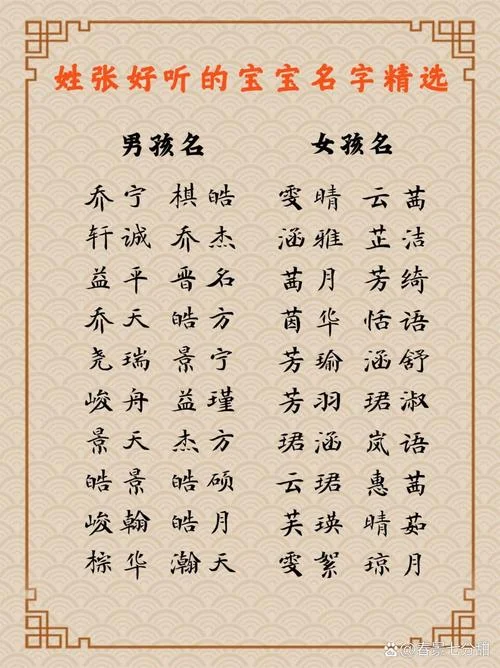 姓张好听的宝宝名字精选
男孩名 女孩名
乔宁 棋皓 雯晴 云茜
轩诚 乔杰 涵雅 芷洁
益平 晋名 茜月 芳绮
乔天 皓方 茵华 恬语
尧瑞 景宁 芳瑜 涵舒
峻舟 益瑾 芳羽 珺淑
景天 杰方 珺涵 岚语
皓景 皓硕 云珺 惠茜
峻翰 皓月 芙瑛 晴茹
棕华 瀚天 雯絮 琼月
春景七分甜